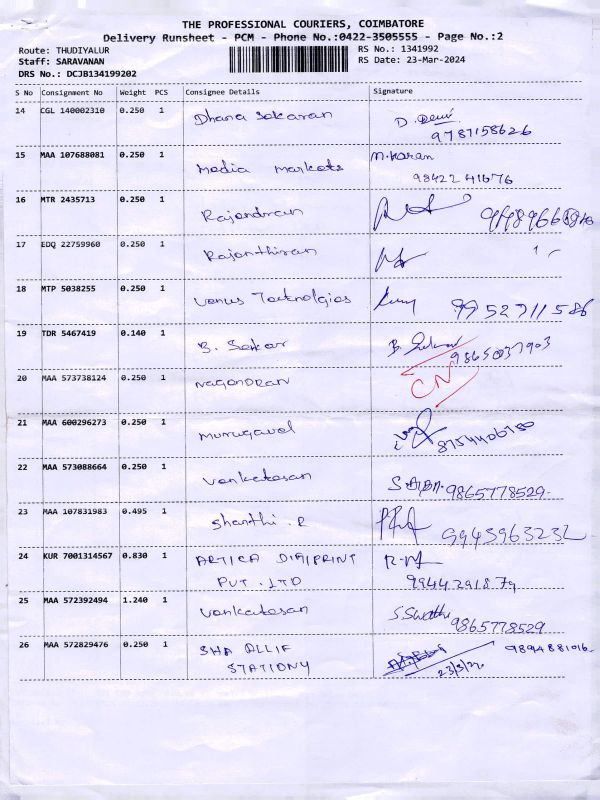 THE PROFESSIONAL COURIERS, COIMBATORE
Delivery Runsheet - PCM - Phone No.:0422-3505555 - Page No.:2
Route: THUDIYALUR
RS No.: 1341992
Staff: SARAVANAN
RS Date: 23-Mar-2024
DRS No.: DCJB134199202
S No Consignment No Weight PCS Consignee Details Signature
14 CGL 140002310 0.250 1 Dhana Sekaran D. Devi
9787158626
15 MAA 107688081 0.250 1 Media Markets M. Karan
98422 41676
16 MTR 2435713 0.250 1 Rajendran
17 EDQ 22759960 0.250 1 Rajanthiran
18 MTP 5038255 0.250 1 Venus Technolgies 9952711586
19 TDR 5467419 0.140 1 B. Sekar B.
9865037903
20 MAA 573738124 0.250 1 NAGENDRAN CN
21 MAA 600296273 0.250 1 Murugavel
8754406780
22 MAA 573088664 0.250 1 Venkatesan 9865778529
23 MAA 107831983 0.495 1 Shanthi . R 9943963232
24 KUR 7001314567 0.830 1 ARTICA DIGIPRINT
PVT . LTD 99442 91879
25 MAA 572392494 1.240 1 Venkatesan S. Swathi
9865778529
26 MAA 572829476 0.250 1 SHA ALLIF 9894881016
STATIONY 23/3/24